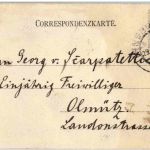 CORRESPONDENZKARTE.
Georg v. Scarpatetti
Einjährig Freiwilliger
Olmütz
Laudonstrasse